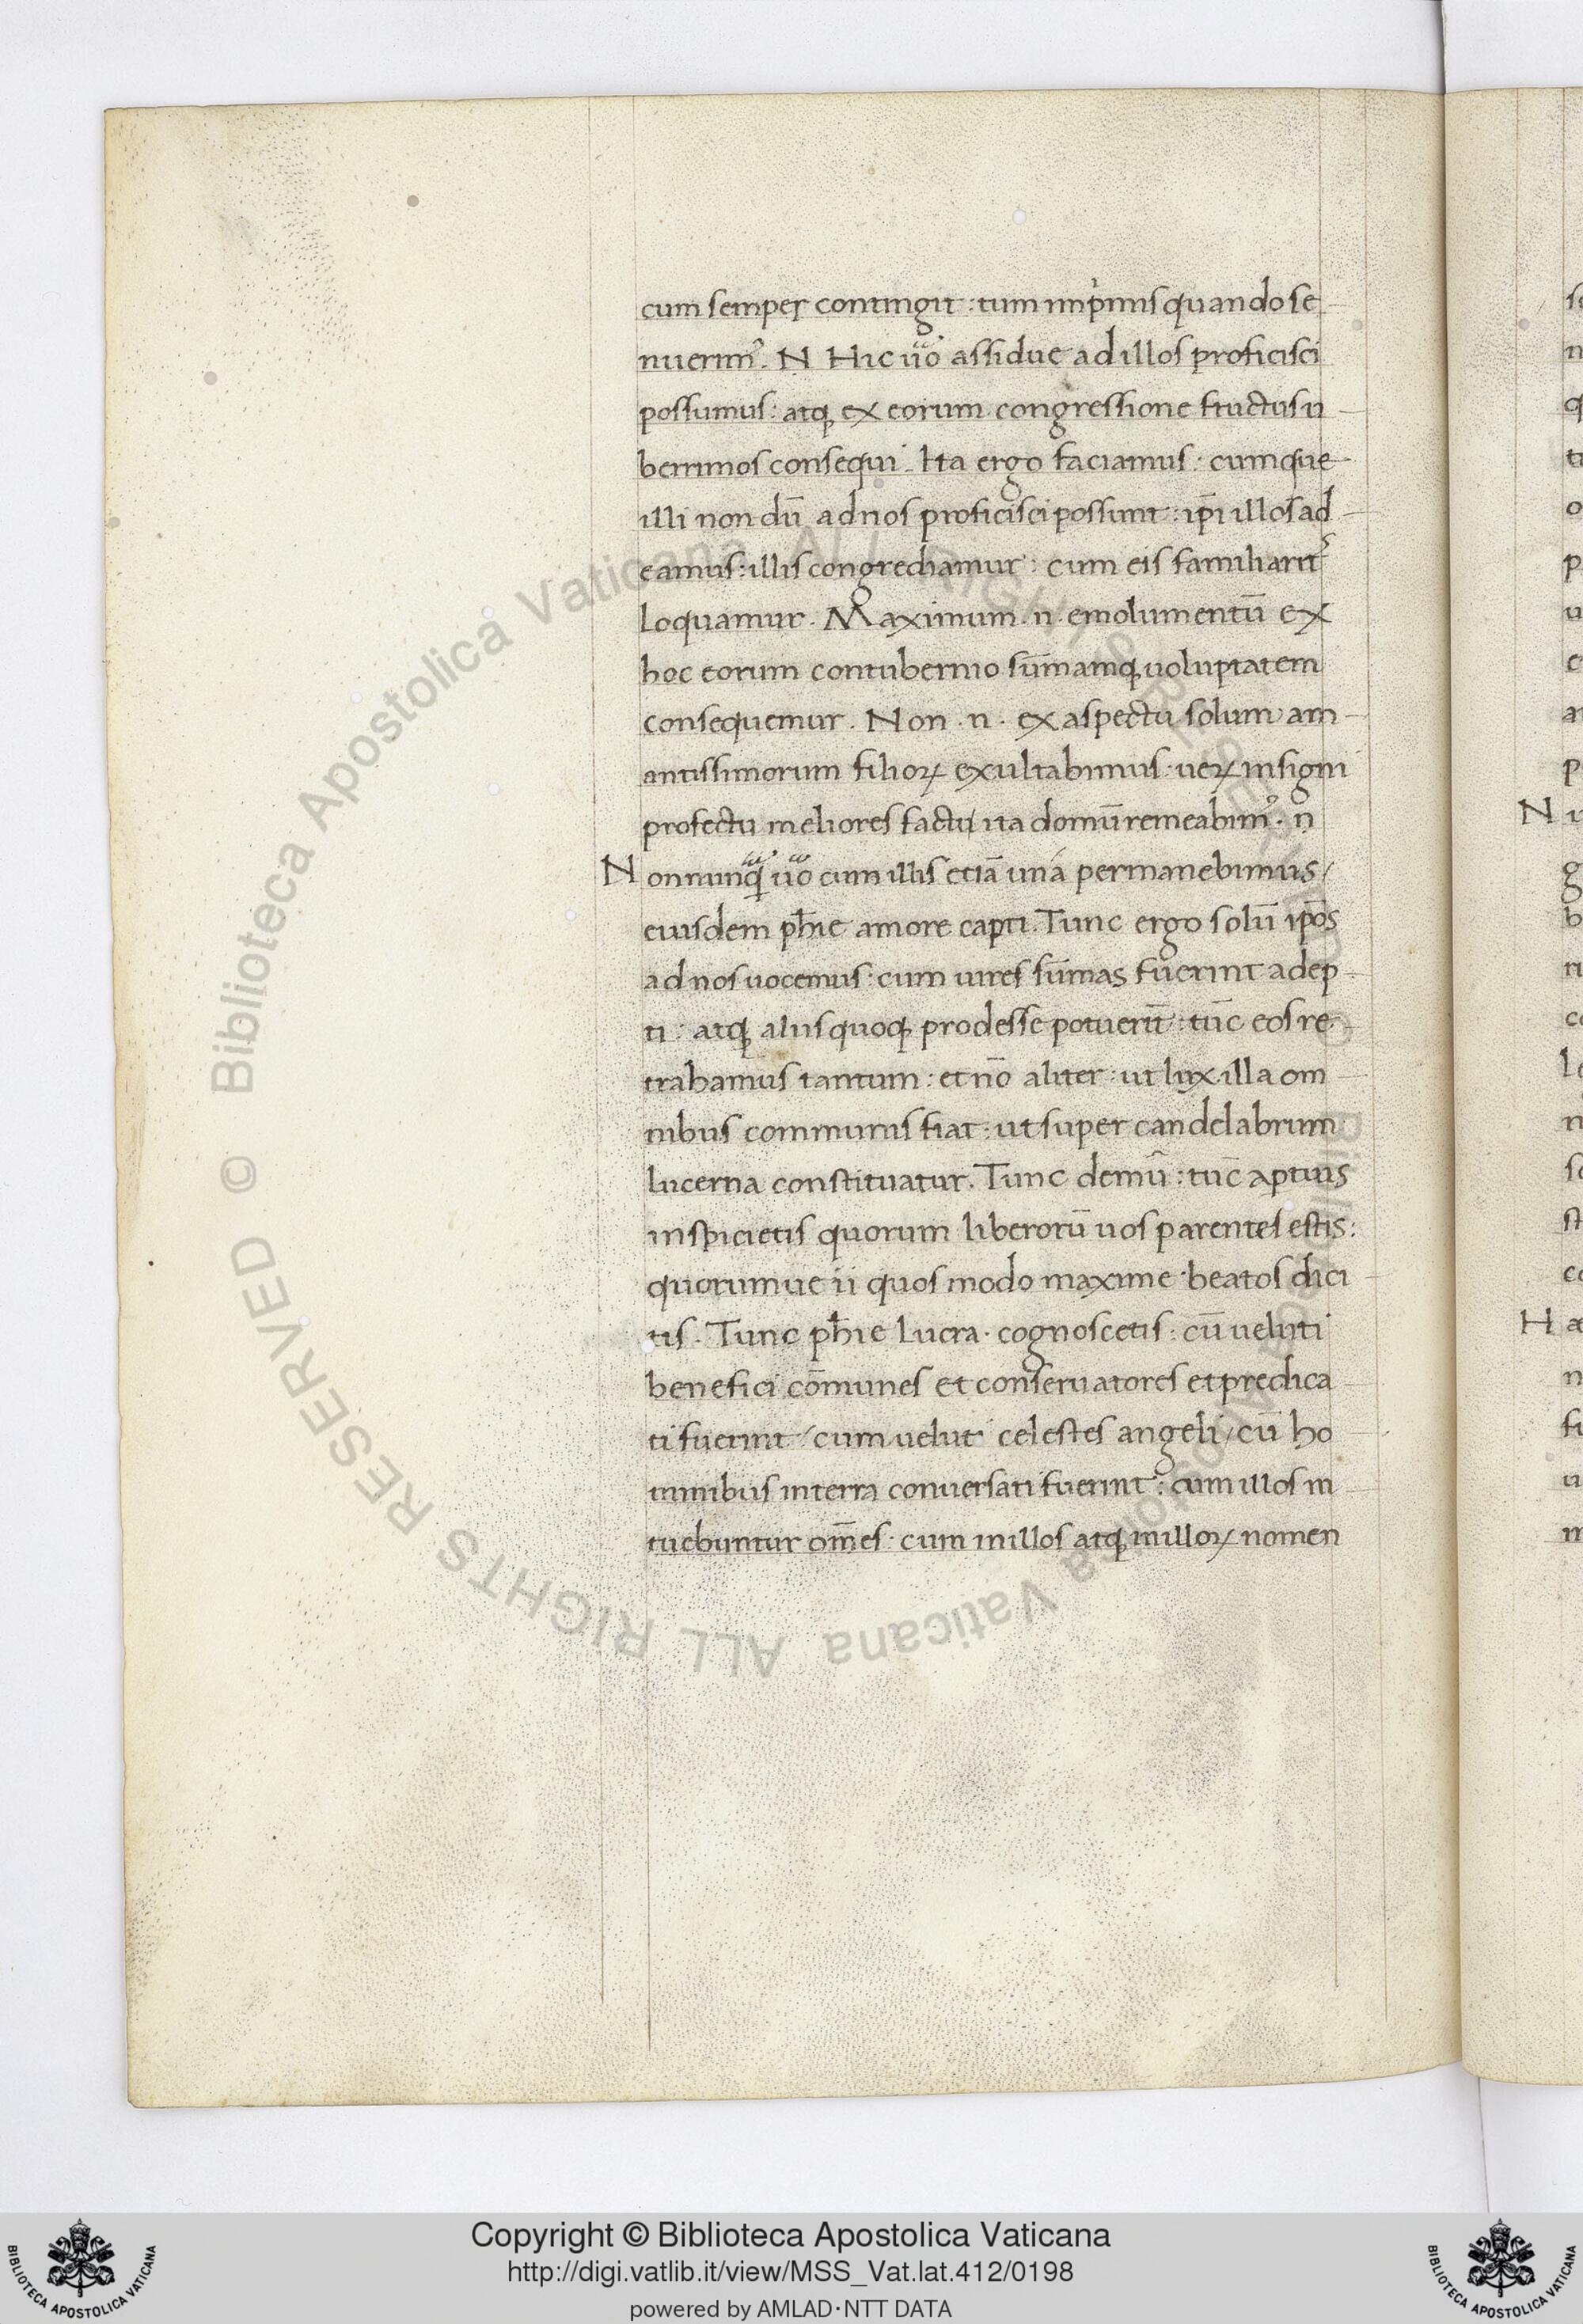 cum semper contingit : tum inp̾mis quando se
nuerim᾿. N Hic ūo assidue ad illos proficisci
possumus : atq̨ ex eorum congressione fructus u
berrimos consequi. Ita ergo faciamus : cumque
illi non dū ad nos proficisci possunt : ip̄i illos ad
eamus : illis congrediamur : cum eis familiarit᾿
loquamur. Maximum .n. emolumentū ex
hoc eorum contubernio sūmamq̨ uoluptatem
consequemur. Non .n. ex aspectu solum am
antissimorum filioꝝ exultabimus : ueꝝ insigni
profectu meliores facti / ita domū remeabim᾿. n
N onnunq̄ ūo cum illis etiā unà permanebimus /
eiusdem ph̄ie amore capti. Tunc ergo solū ip̄os
ad nos uocemus : cum uires sūmas fuerint adep
ti : atq̨ aliis quoq̨ prodesse potuerīt : tūc eos re
trahamus tantum : et nō aliter : ut lux illa om
nibus communis fiat : ut super candelabrum
lucerna constituatur. Tunc demū : tūc aptius
inspicietis quorum liberorū uos parentes estis :
quorumue ii quos modo maxime beatos dici
tis. Tunc ph̄ie lucra cognoscetis : cū ueluti
benefici cōmunes et conseruatores et predica
ti fuerint / cum uelut celestes angeli / cū ho
minibus in terra conuersati fuerint : cum illos in
tuebuntur om̄es : cum in illos atq̨ in illoꝝ nomen
Copyright © Biblioteca Apostolica Vaticana
http://digi.vatlib.it/view/MSS_Vat.lat.412/0198
powered by AMLAD·NTT DATA
BIBLIOTECA APOSTOLICA VATICANA
BIBLIOTECA APOSTOLICA VATICANA
© Biblioteca Apostolica Vaticana ALL RIGHTS RESERVED
© Biblioteca Apostolica Vaticana ALL RIGHTS RESERVED